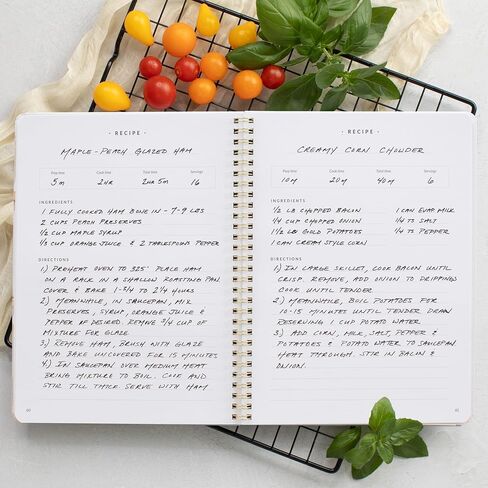 · RECIPE ·
MAPLE-PEACH GLAZED HAM
Prep time Cook time Total time Servings
5m 2HR 2HR 5m 16
INGREDIENTS
1 FULLY COOKED HAM BONE IN - 7-9 LBS
2 CUPS PEACH PRESERVES
1/2 CUP MAPLE SYRUP
1/3 CUP ORANGE JUICE & 2 TABLESPOONS PEPPER
DIRECTIONS
1) PREHEAT OVEN TO 325° PLACE HAM
ON A RACK IN A SHALLOW ROASTING PAN.
COVER & BAKE 1-3/4 TO 2 1/4 HOURS
2) MEANWHILE, IN SAUCEPAN, MIX
PRESERVES, SYRUP, ORANGE JUICE &
PEPPER IF DESIRED. REMOVE 3/4 CUP OF
MIXTURE FOR GLAZE
3) REMOVE HAM, BRUSH WITH GLAZE
AND BAKE UNCOVERED FOR 15 MINUTES
4) IN SAUCEPAN OVER MEDIUM HEAT
BRING MIXTURE TO BOIL. COOK AND
STIR TILL THICK SERVE WITH HAM
60
· RECIPE ·
CREAMY CORN CHOWDER
Prep time Cook time Total time Servings
10m 20m 40m 6
INGREDIENTS
1/2 LB CHOPPED BACON 1 CAN EVAP. MILK
1/4 CUP CHOPPED ONION 1/4 TS SALT
1 1/2 LB GOLD POTATOES 1/4 TS PEPPER
1 CAN CREAM STYLE CORN
DIRECTIONS
1) IN LARGE SKILLET, COOK BACON UNTIL
CRISP. REMOVE, ADD ONION TO DRIPPINGS
COOK UNTIL TENDER
2) MEANWHILE, BOIL POTATOES FOR
10-15 MINUTES UNTIL TENDER DRAIN
RESERVING 1 CUP POTATO WATER
3) ADD CORN, MILK, SALT, PEPPER &
POTATOES & POTATO WATER TO SAUCEPAN.
HEAT THROUGH. STIR IN BACON &
ONION.
61